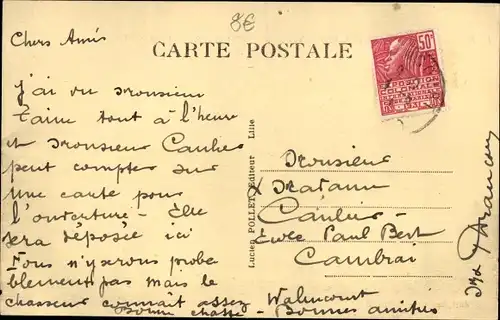 8€
Chers Amis
CARTE POSTALE
J'ai vu Monsieur
Taine tout à l'heure
et Monsieur Caulier
peut compter sur
une carte pour
l'ouverture - Elle
sera déposée ici
Nous n'y serons probe
blement pas mais le
chasseur connaît assez Walincourt
Bonne chasse - Bonnes amitiés
Lucien POLLET, Editeur Lille
50c
EXPOSITION
COLONIALE
INTERNATIONALE
Monsieur
& Madame
Caulier
Rue Paul Bert
Cambrai